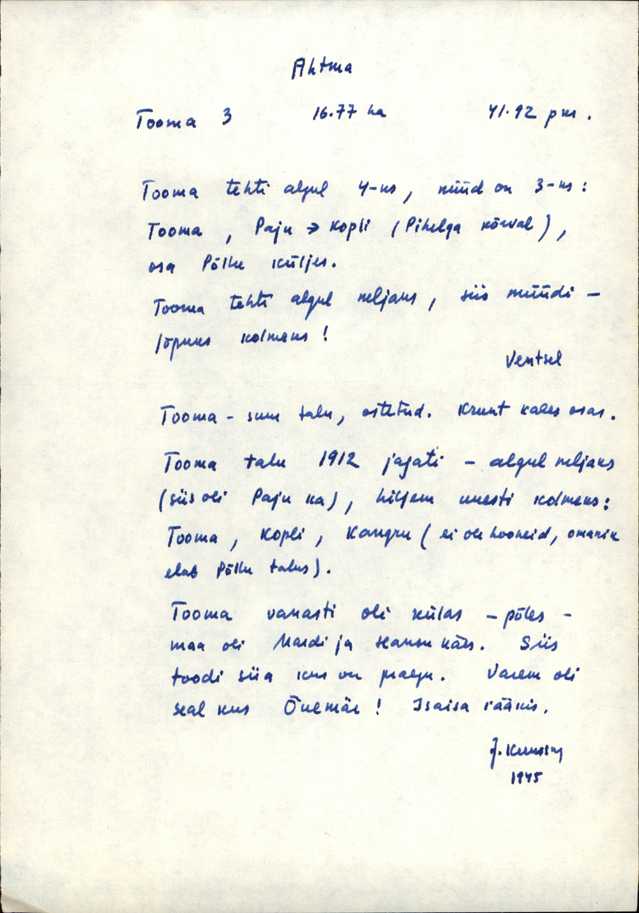 Ahtma
Tooma 3 16.77 ha 41.92 pns.
Tooma tehti algul 4-ks, nüüd on 3-ks:
Tooma, Paju → Kopli (Pihelga kõrval),
osa Põllu küljes.
Tooma tehti algul neljaks, siis müüdi –
lõpuks kolmeks!
Ventsel
Tooma – suur talu, ostetud. Krunt kahes osas.
Tooma talu 1912 jagati – algul neljaks
(siis oli Paju ka), hiljem uuesti kolmeks:
Tooma, Kopli, Kangru (ei ole hooneid, omanik
elab Põllu talus).
Tooma vanasti oli külas – põles –
maa oli Mardi ja Hansu käes. Siis
toodi siia kus on praegu. Varem oli
seal kus Õuemäe! Isaisa rääkis.
1945